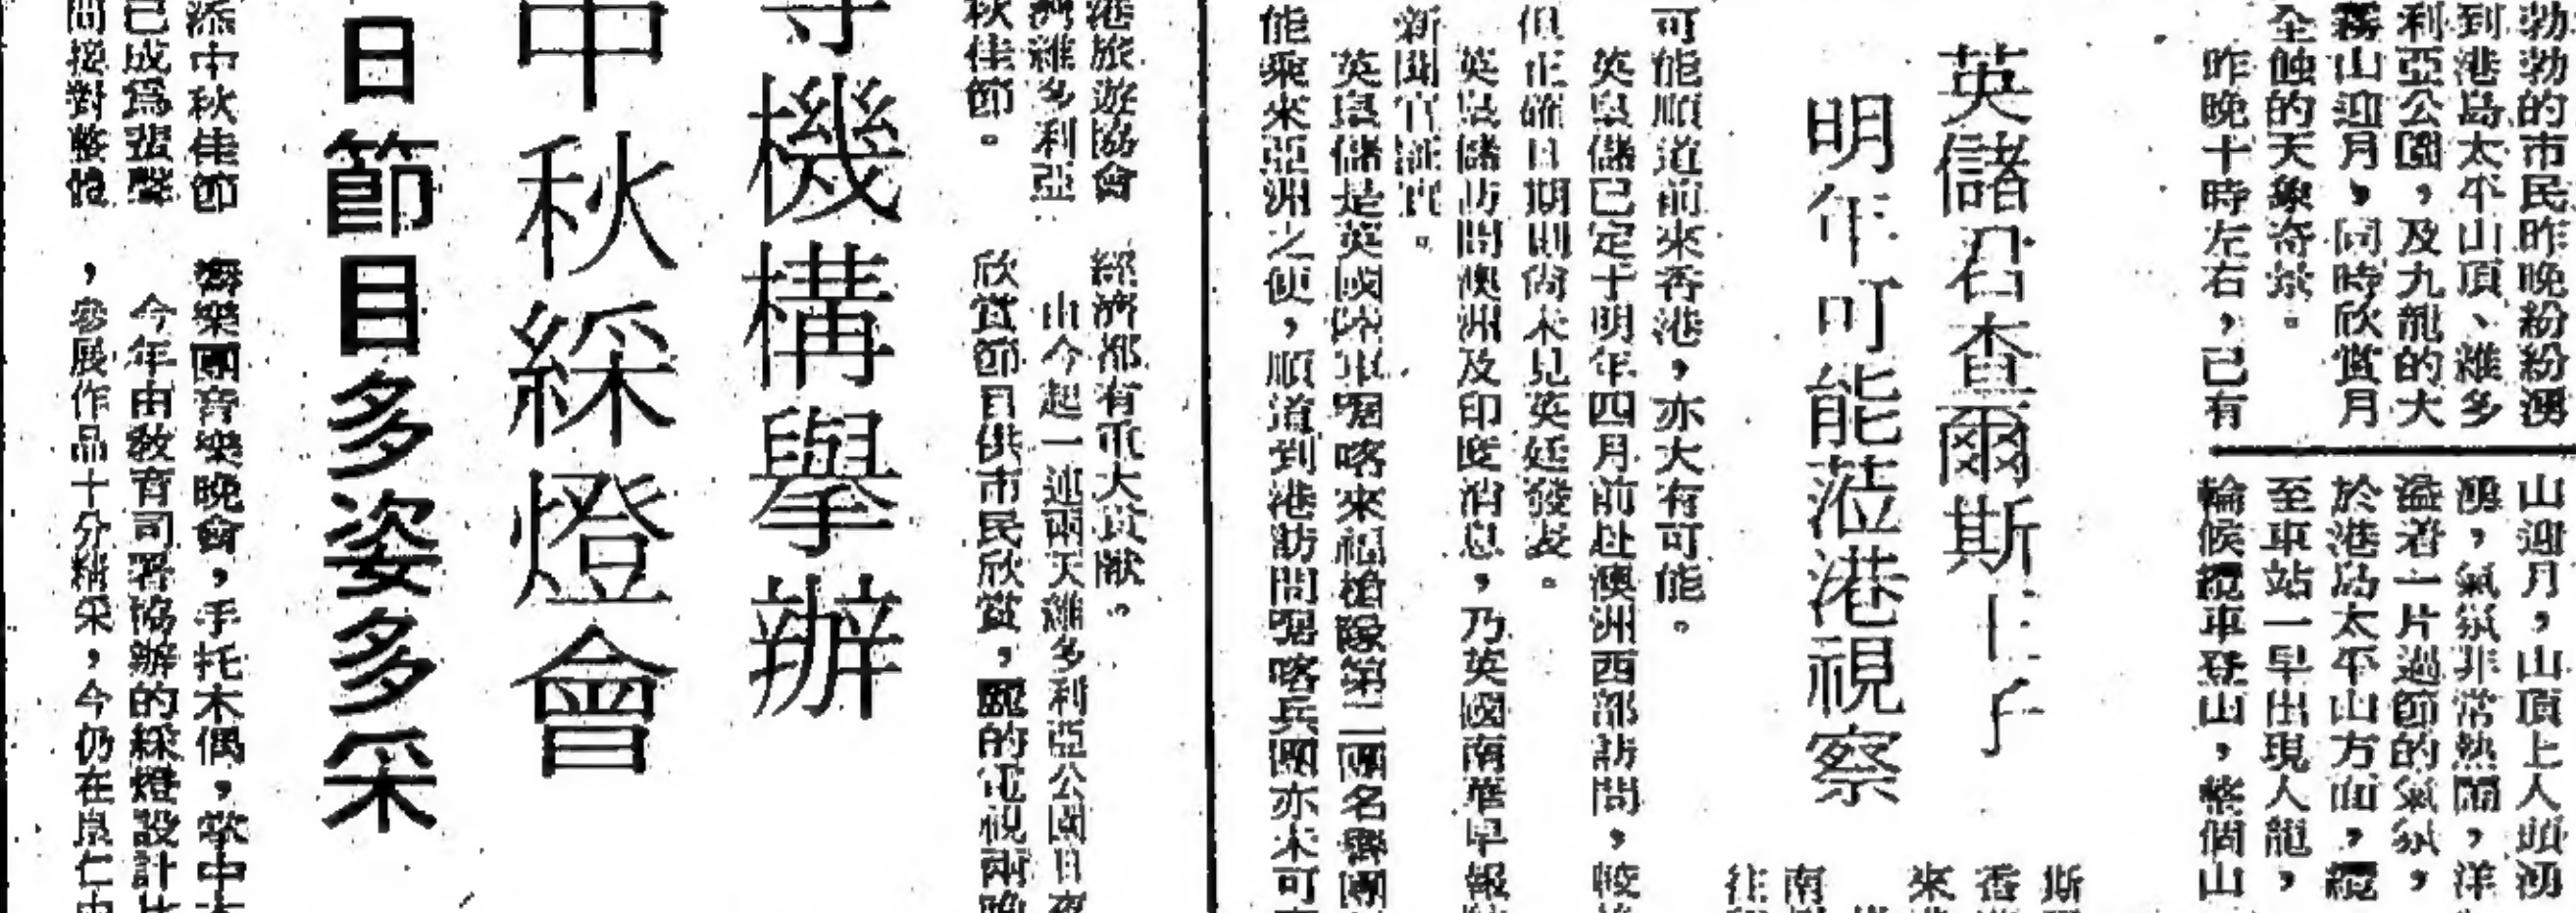 勃勃的市民昨晚紛紛湧
到港島太平山頂、維多
利亞公園，及九龍的大
霧山迎月，同時欣賞月
全蝕的天象奇景。
昨晚十時左右，已有
山迎月，山頂上人頭湧
湧，氣氛非常熱鬧，洋
溢着一片過節的氣氛，
於港島太平山方面，纜
至車站一早出現人龍，
輪候纜車登山，整個山
英儲君查爾斯王子
明年可能蒞港視察
斯
香
來
南
往
可能順道前來香港，亦大有可能。
英皇儲已定于明年四月前赴澳洲西部訪問，較
但正確日期則尚未見英廷發表。
英皇儲訪問澳洲及印度消息，乃英國南華早報
新聞官証實。
英皇儲是英國陸軍啹喀來福槍隊第二團名譽團
能乘來亞洲之便，順道到港訪問啹喀兵團亦未可
港旅遊協會
洲維多利亞
秋佳節。
經濟都有重大貢獻。
由今起一連兩天維多利亞公園日夜
欣賞節目供市民欣賞，麗的電視兩晚
等機構舉辦
中秋綵燈會
日節目多姿多采
添中秋佳節
已成爲蜚聲
間接對整個
海樂團音樂晚會，手托木偶，掌中木
今年由教育司署協辦的綵燈設計比
，參展作品十分精采，今仍在良仁中